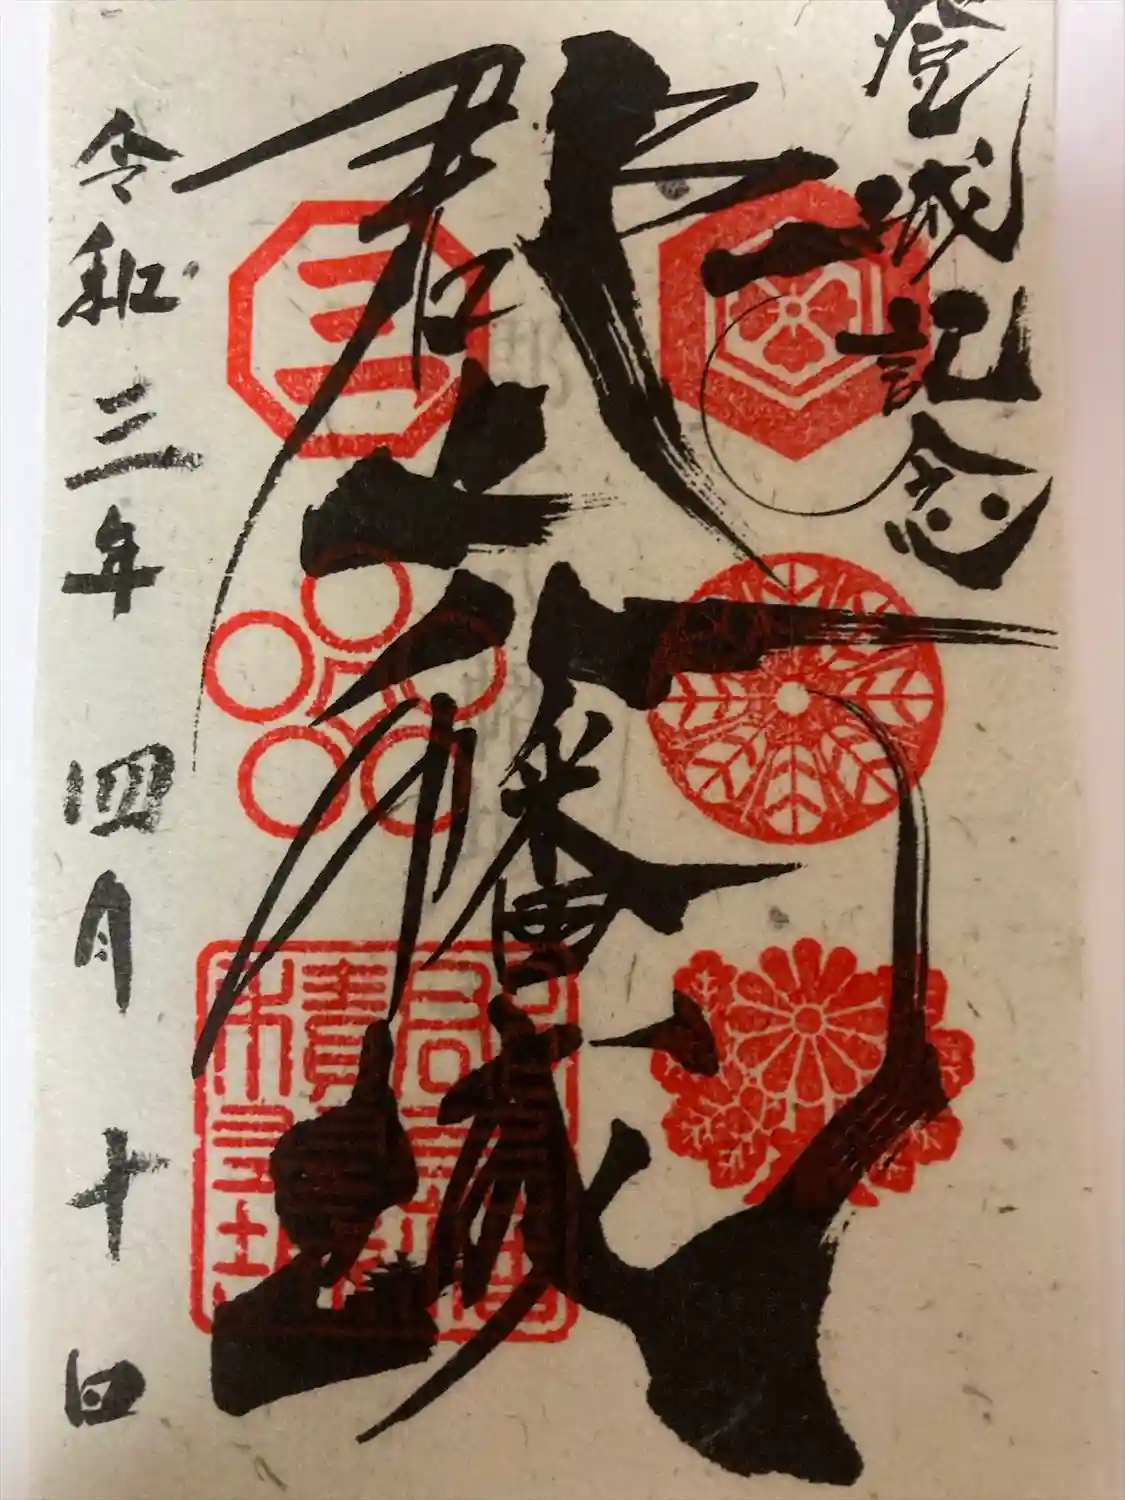 登城記念
郡上八幡城
令和三年四月十日